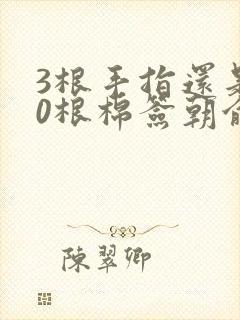 3根手指還
0根棉簽朝
陳翠卿